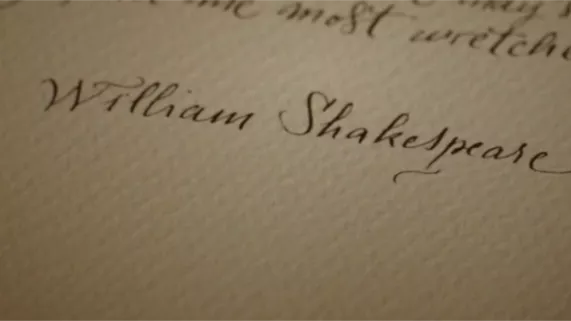 may
me most wretche
William Shakespeare